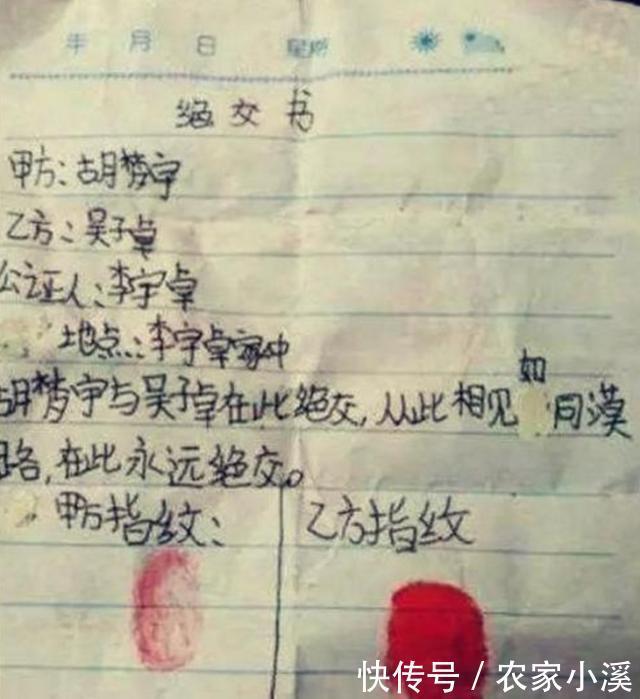 年 月 日 星期
绝交书
甲方:胡梦宇
乙方:吴子卓
公证人:李宇卓
地点:李宇卓家中
胡梦宇与吴子卓在此绝交,从此相见如同漠
路,在此永远绝交。
甲方指纹: 乙方指纹
快传号/农家小溪